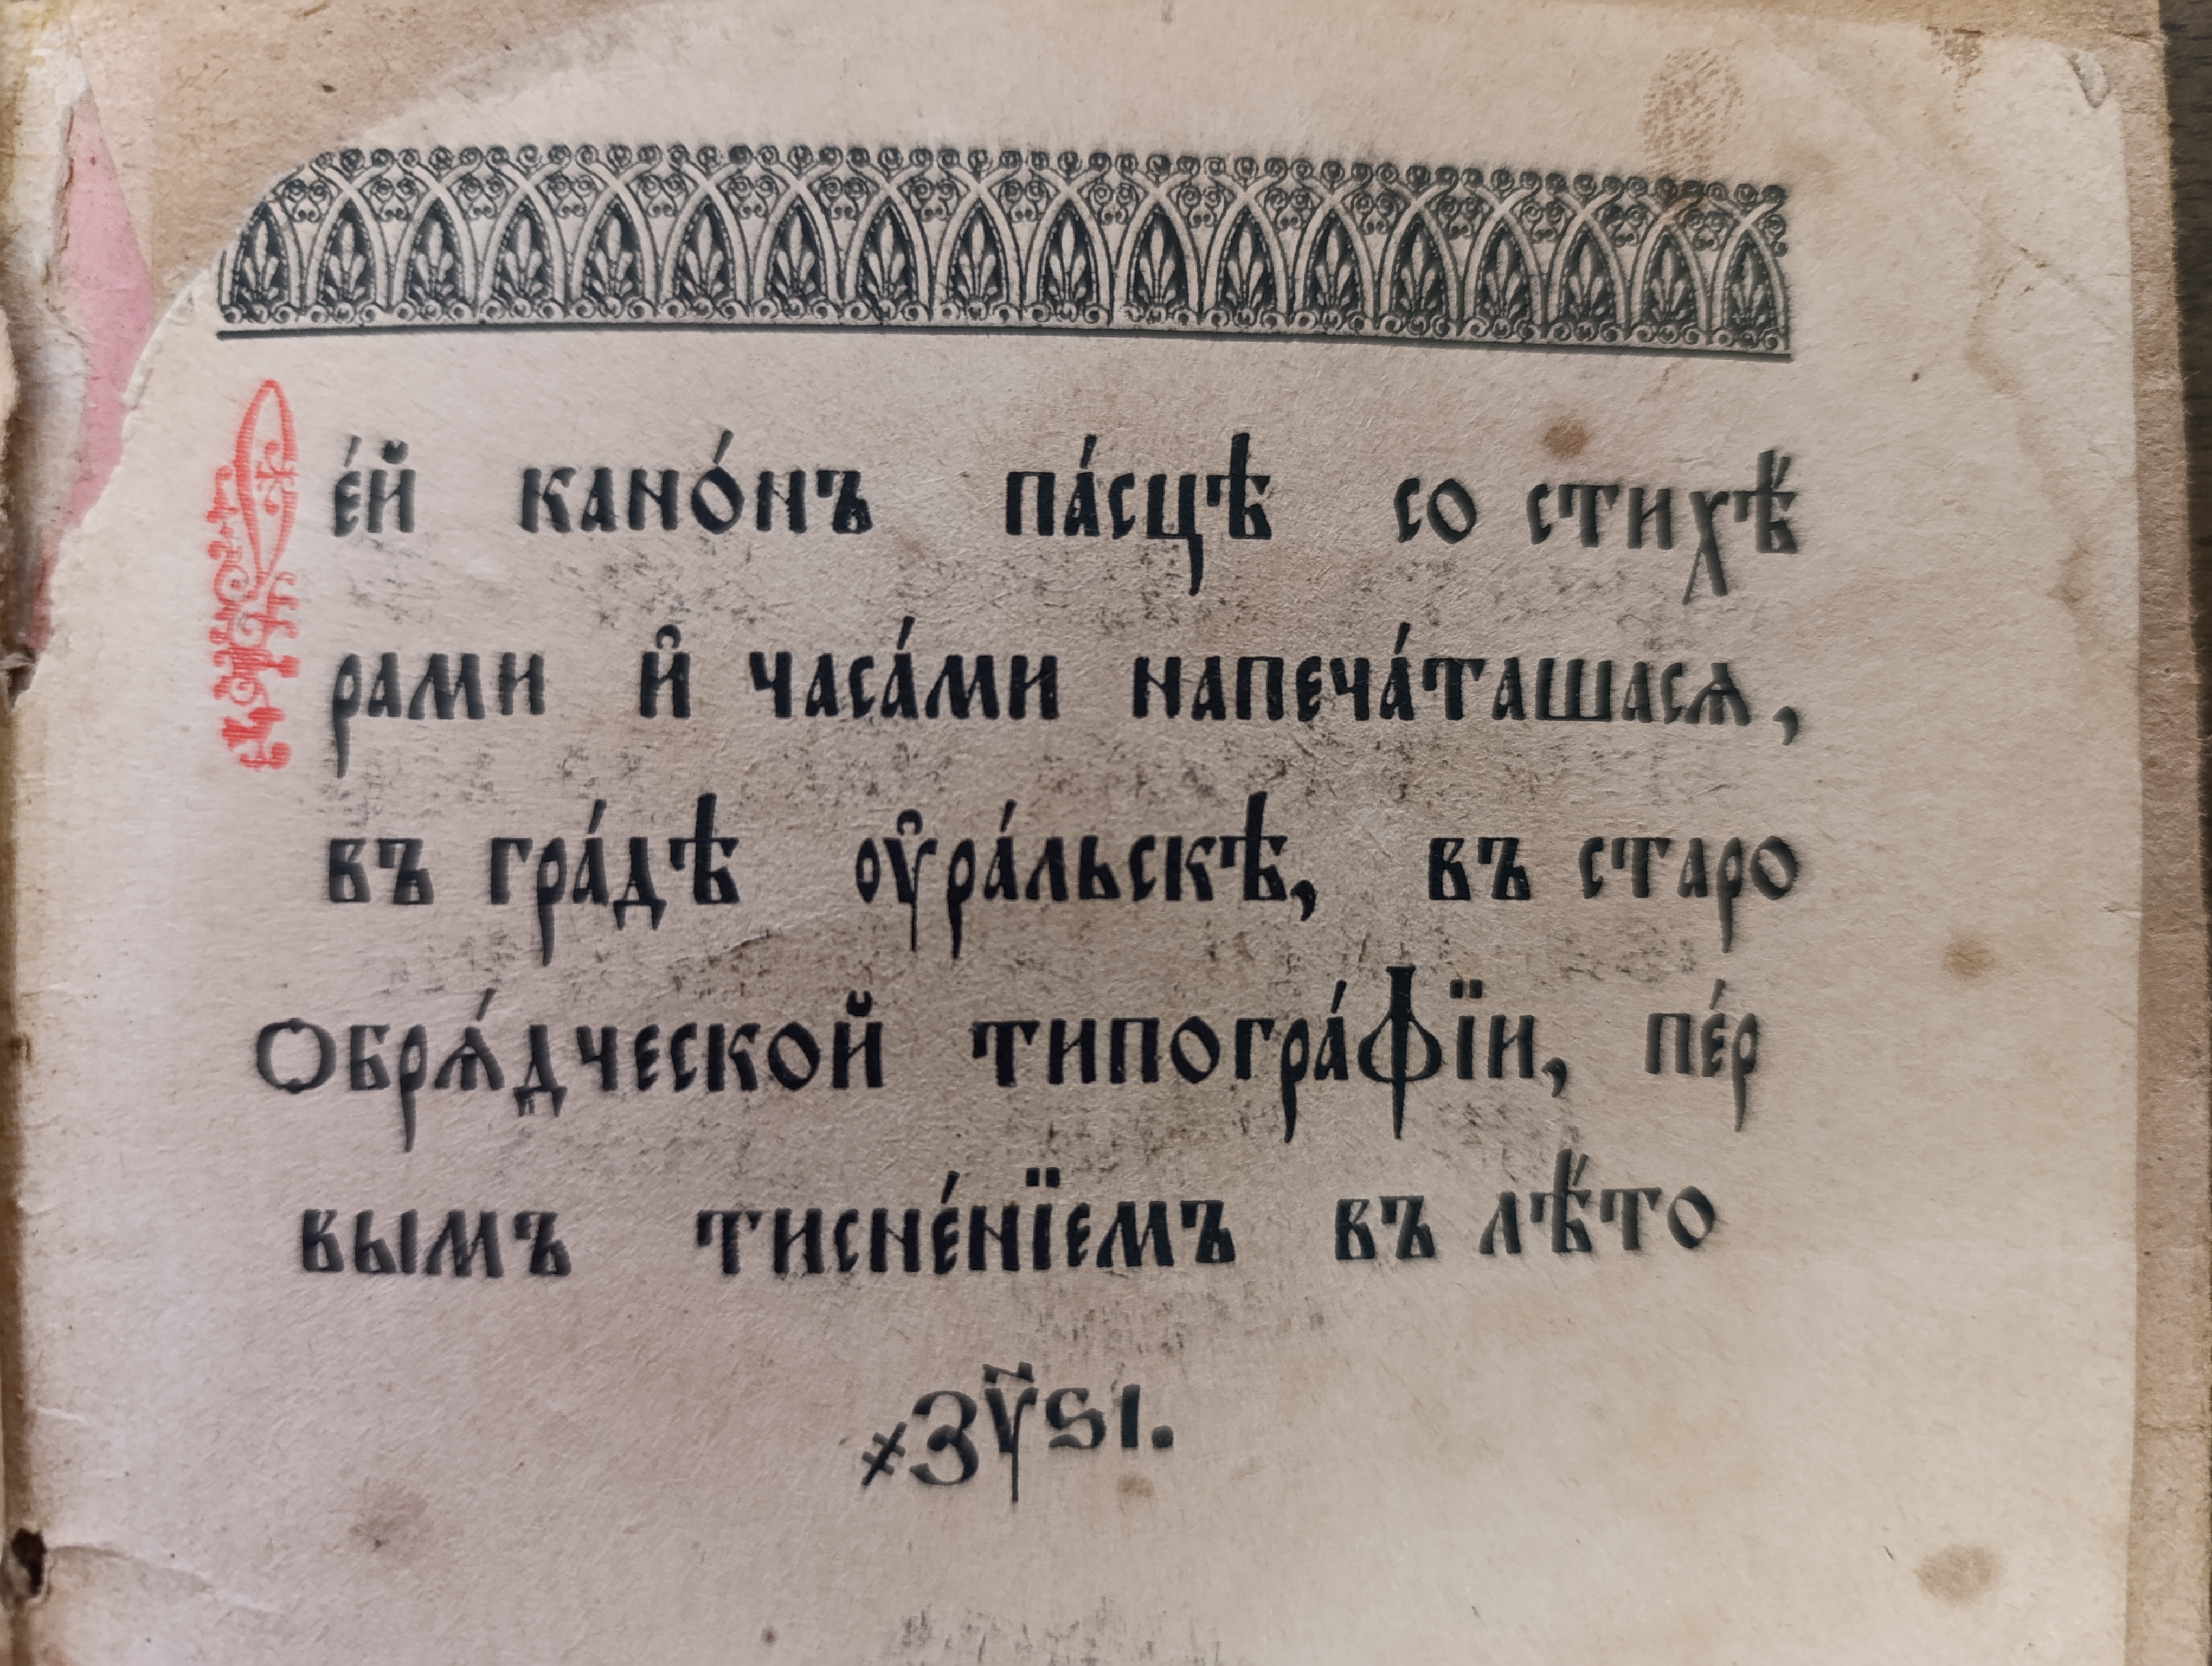 Се́й кано́нъ па́сцѣ со стихѣ́
рами и҆ часа́ми напеча́ташасѧ,
въ гра́дѣ ᲂу҆ра́льскѣ, въ старо
Ѻбрѧ́дческой типогра́фїи, пе́р
вымъ тисне́нїемъ въ лѣ́то
҂зѵ҃ѕі.